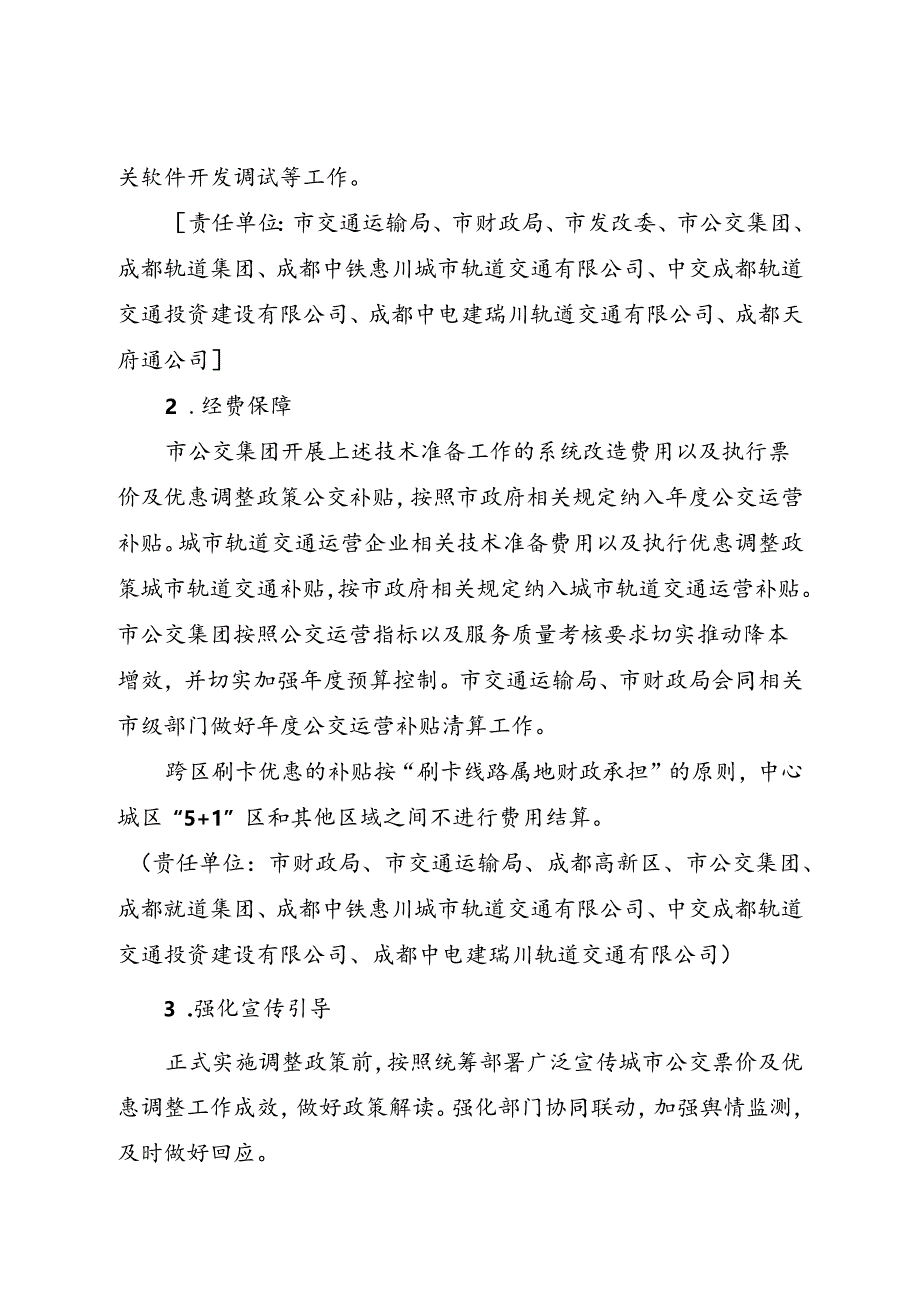 关软件开发调试等工作。
［责任单位: 市交通运输局、市财政局、市发改委、市公交集团、
成都轨道集团、成都中铁惠川城市轨道交通有限公司、中交成都轨道
交通投资建设有限公司、成都中电建瑞川轨道交通有限公司、成都天
府通公司］
2 .经费保障
市公交集团开展上述技术准备工作的系统改造费用以及执行票
价及优惠调整政策公交补贴,按照市政府相关规定纳入年度公交运营
补贴。城市轨道交通运营企业相关技术准备费用以及执行优惠调整政
策城市轨道交通补贴,按市政府相关规定纳入城市轨道交通运营补贴。
市公交集团按照公交运营指标以及服务质量考核要求切实推动降本
增效，并切实加强年度预算控制。市交通运输局、市财政局会同相关
市级部门做好年度公交运营补贴清算工作。
跨区刷卡优惠的补贴按“刷卡线路属地财政承担”的原则，中心
城区“5+1”区和其他区域之间不进行费用结算。
（贵任单位：市财政局、市交通运输局、成都高新区、市公交集团、
成都就道集团、成都中铁惠川城市轨道交通有限公司、中交成都轨道
交通投资建设有限公司、成都中电建瑞川轨道交通有限公司）
3 .强化宣传引导
正式实施调整政策前,按照统筹部署广泛宣传城市公交票价及优
惠调整工作成效，做好政策解读。强化部门协同联动,加强舆情监测,
及时做好回应。